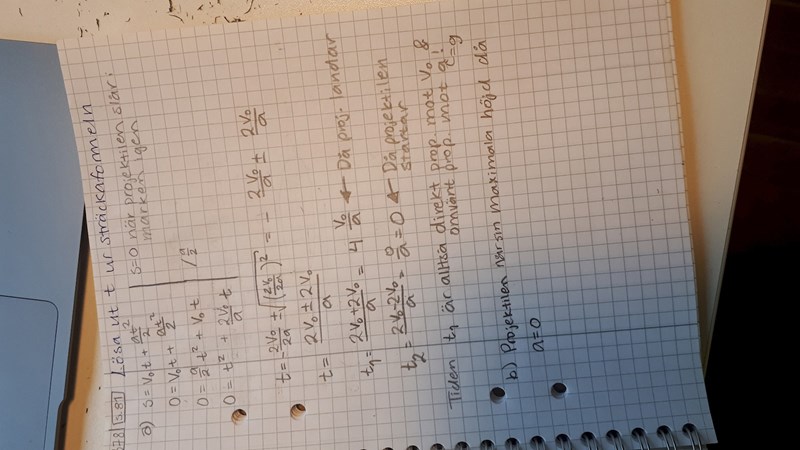 378 s.81 Lösa ut t ur sträckaformeln
a) s = v₀t + at²/2 | s=0 när projektilen slår i
0 = v₀t + at²/2 | marken igen
0 = a/2 t² + v₀t | / a/2
0 = t² + 2v₀/a t
t = -2v₀/2a ± √((2v₀/2a)²) = - 2v₀/a ± 2v₀/a
t = 2v₀ ± 2v₀/a
t₁ = 2v₀+2v₀/a = 4 v₀/a ← Då proj. landar
t₂ = 2v₀-2v₀/a = 0/a = 0 ← Då projektilen
startar
Tiden t₁ är alltså direkt prop. mot v₀ &
omvänt prop. mot a! a=g
b) Projektilen når sin maximala höjd då
a=0